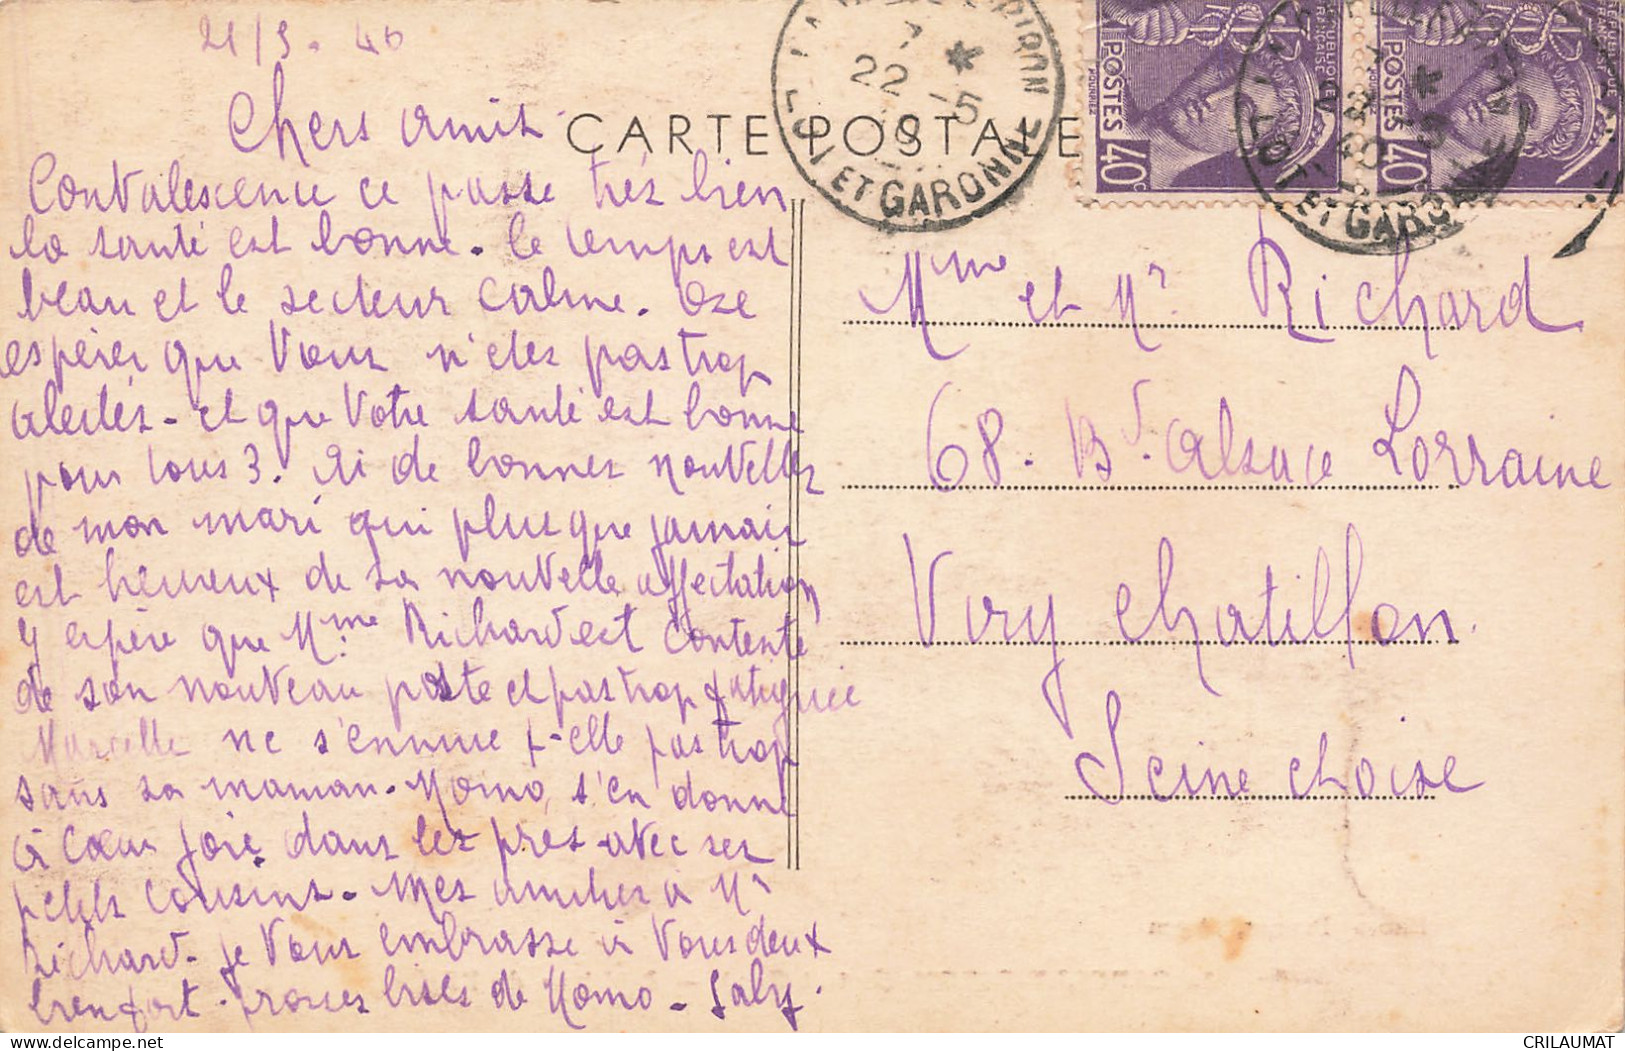 21/5. 40
Chers amis
Convalescence ce passe très bien
la santé est bonne. le temps est
beau et le secteur calme. Ose
espérer que Vous n'etes pas trop
alertés - et que Votre santé est bonne
pour tous 3. Ai de bonnes nouvelles
de mon mari qui plus que jamais
est heureux de sa nouvelle affectation
J espère que Mme Richard est contente
de son nouveau poste et pas trop fatiguée
Marcelle ne s'ennuie t-elle pas trop
sans sa maman. Momo, s'en donne
à cœur joie dans les prés avec ses
petits cousins. Mes amitiés à Mr
Richard. Je Vous embrasse à Vous deux
bien fort. Grosses bises de Momo - Gaby.
CARTE POSTALE
22 -5
LOT ET GARONNE
RÉPUBLIQUE FRANÇAISE
POSTES 40c
POSTES 40c
LOT ET GARONNE
Mme et Mr Richard
68. Bd. Alsace Lorraine
Viry Chatillon.
Seine et Oise
CRILAUMAT